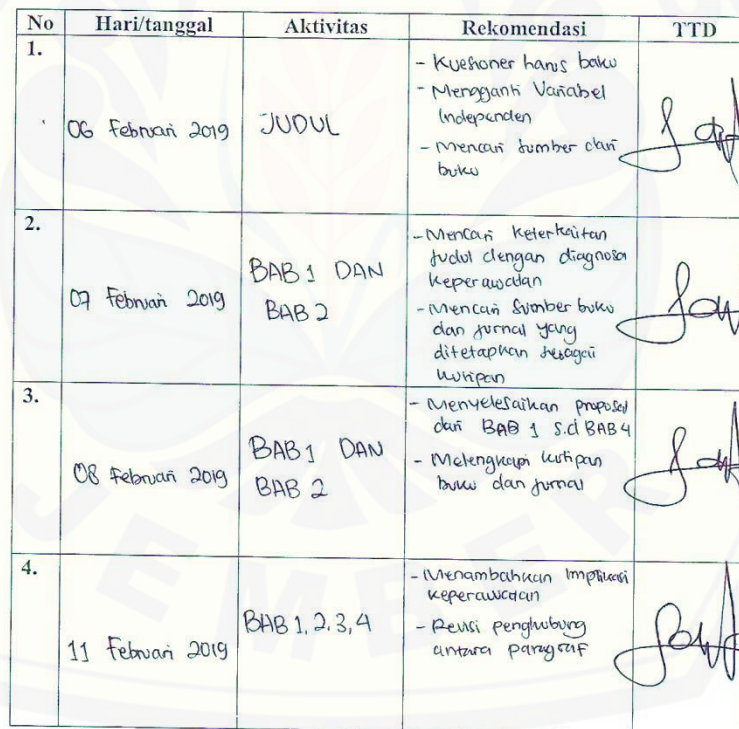 No Hari/tanggal Aktivitas Rekomendasi TTD
1.
06 Februari 2019
JUDUL
- Kuesioner harus baku
- Mengganti Variabel
Independen
- Mencari sumber dari
buku
2.
07 Februari 2019
BAB 1 DAN
BAB 2
- Mencari keterkaitan
judul dengan diagnosa
keperawatan
- Mencari sumber buku
dan jurnal yang
ditetapkan sebagai
kutipan
3.
08 Februari 2019
BAB 1 DAN
BAB 2
- Menyelesaikan proposal
dari BAB 1 s.d BAB 4
- Melengkapi kutipan
buku dan jurnal
4.
11 Februari 2019
BAB 1,2,3,4
- Menambahkan Implikasi
keperawatan
- Revisi penghubung
antara paragraf
JEMBER